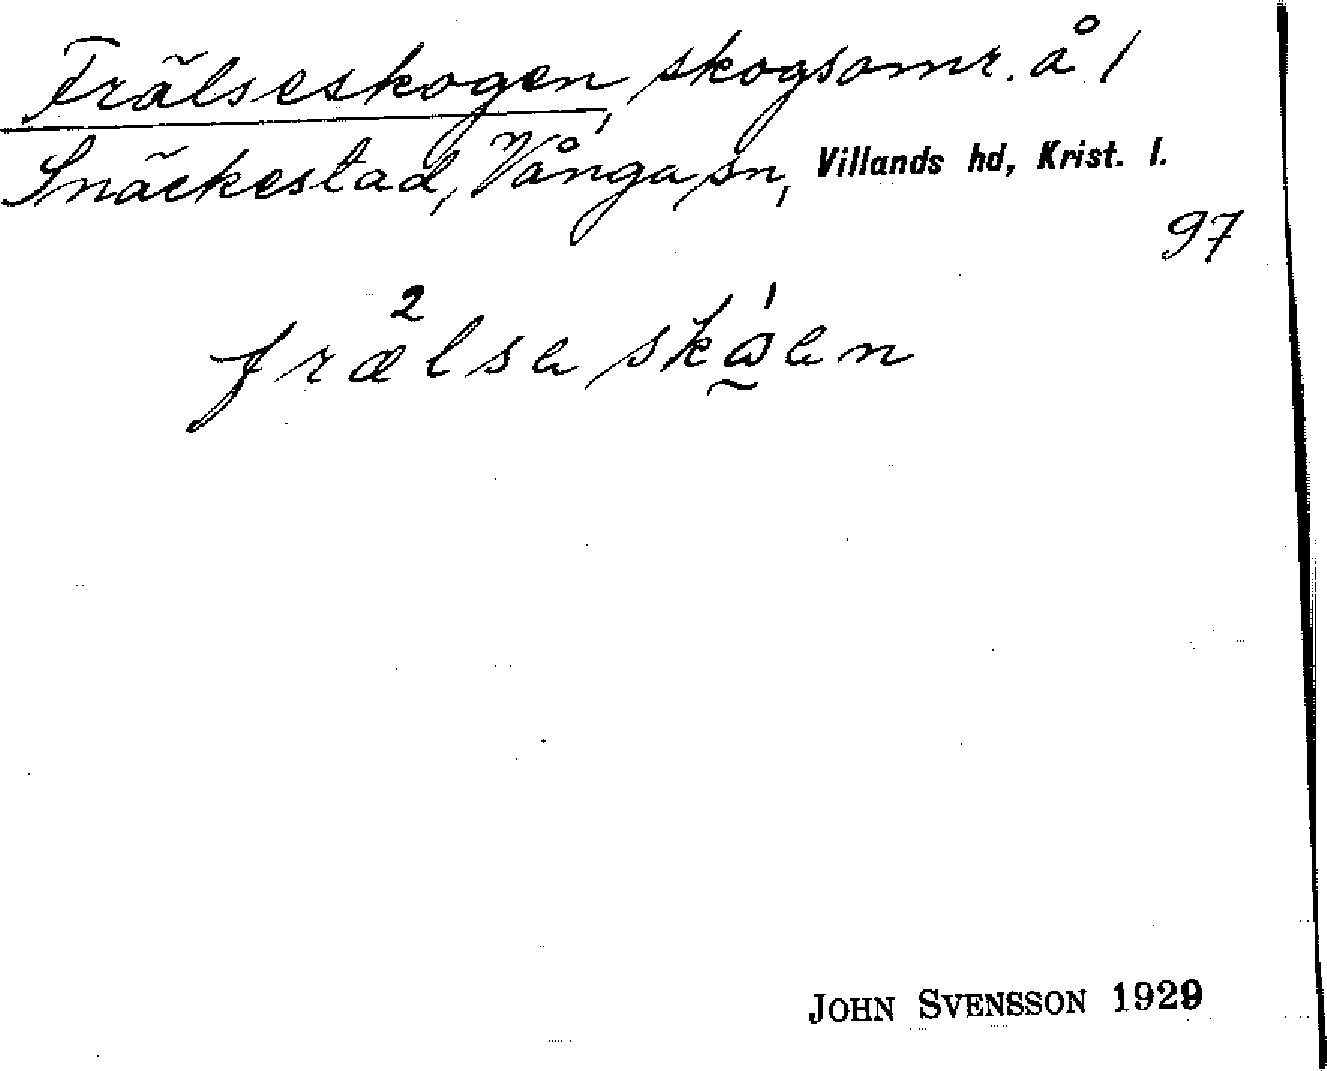 Frälseskogen, skogsomr. å 1
Snäckestad, Vånga sn, Villands hd, Krist. l.
97
JOHN SVENSSON 1929